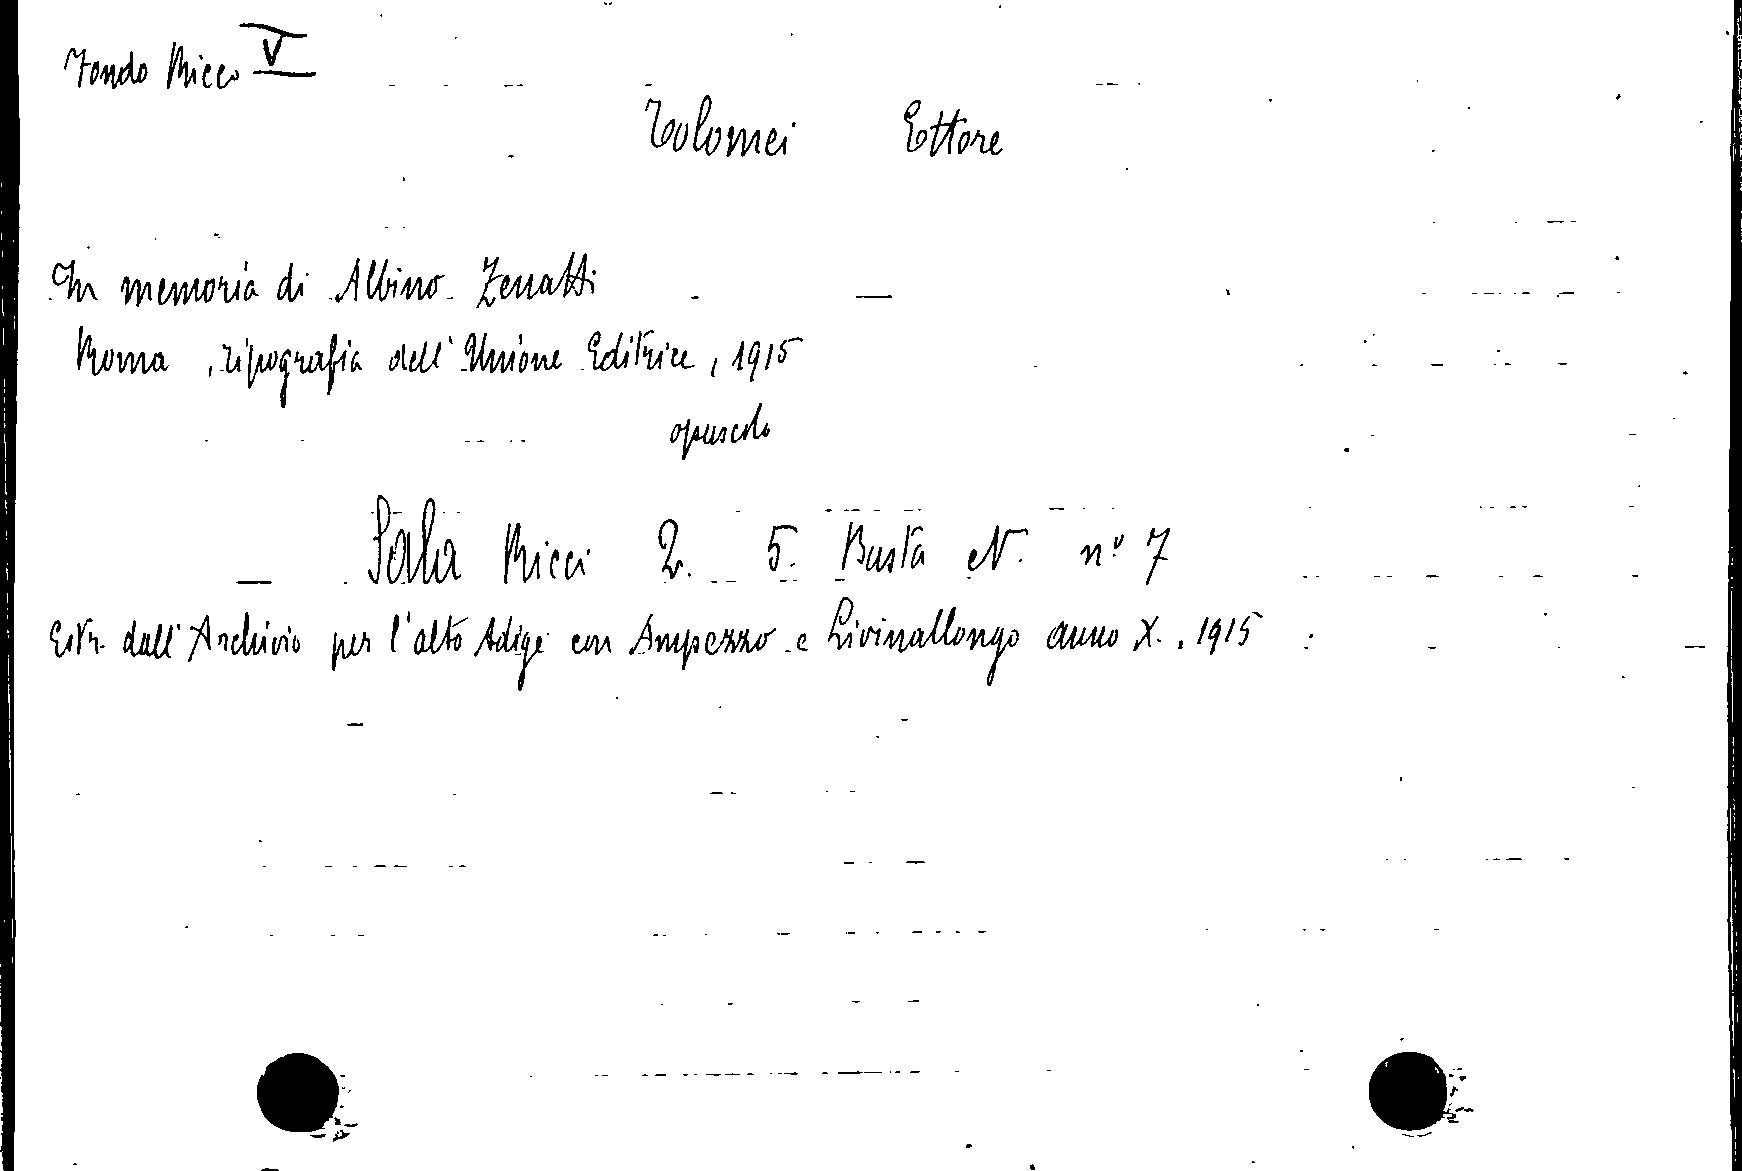 Fondo Ricco V
Tolomei Ettore
In memoria di Albino Zenatti
Roma, tipografia dell'Unione Editrice, 1915
opuscolo
Sala Ricci 2. 5. Busta N. n° 7
Estr. dall'Archivio per l'alto Adige con Ampezzo e Livinallongo anno X., 1915